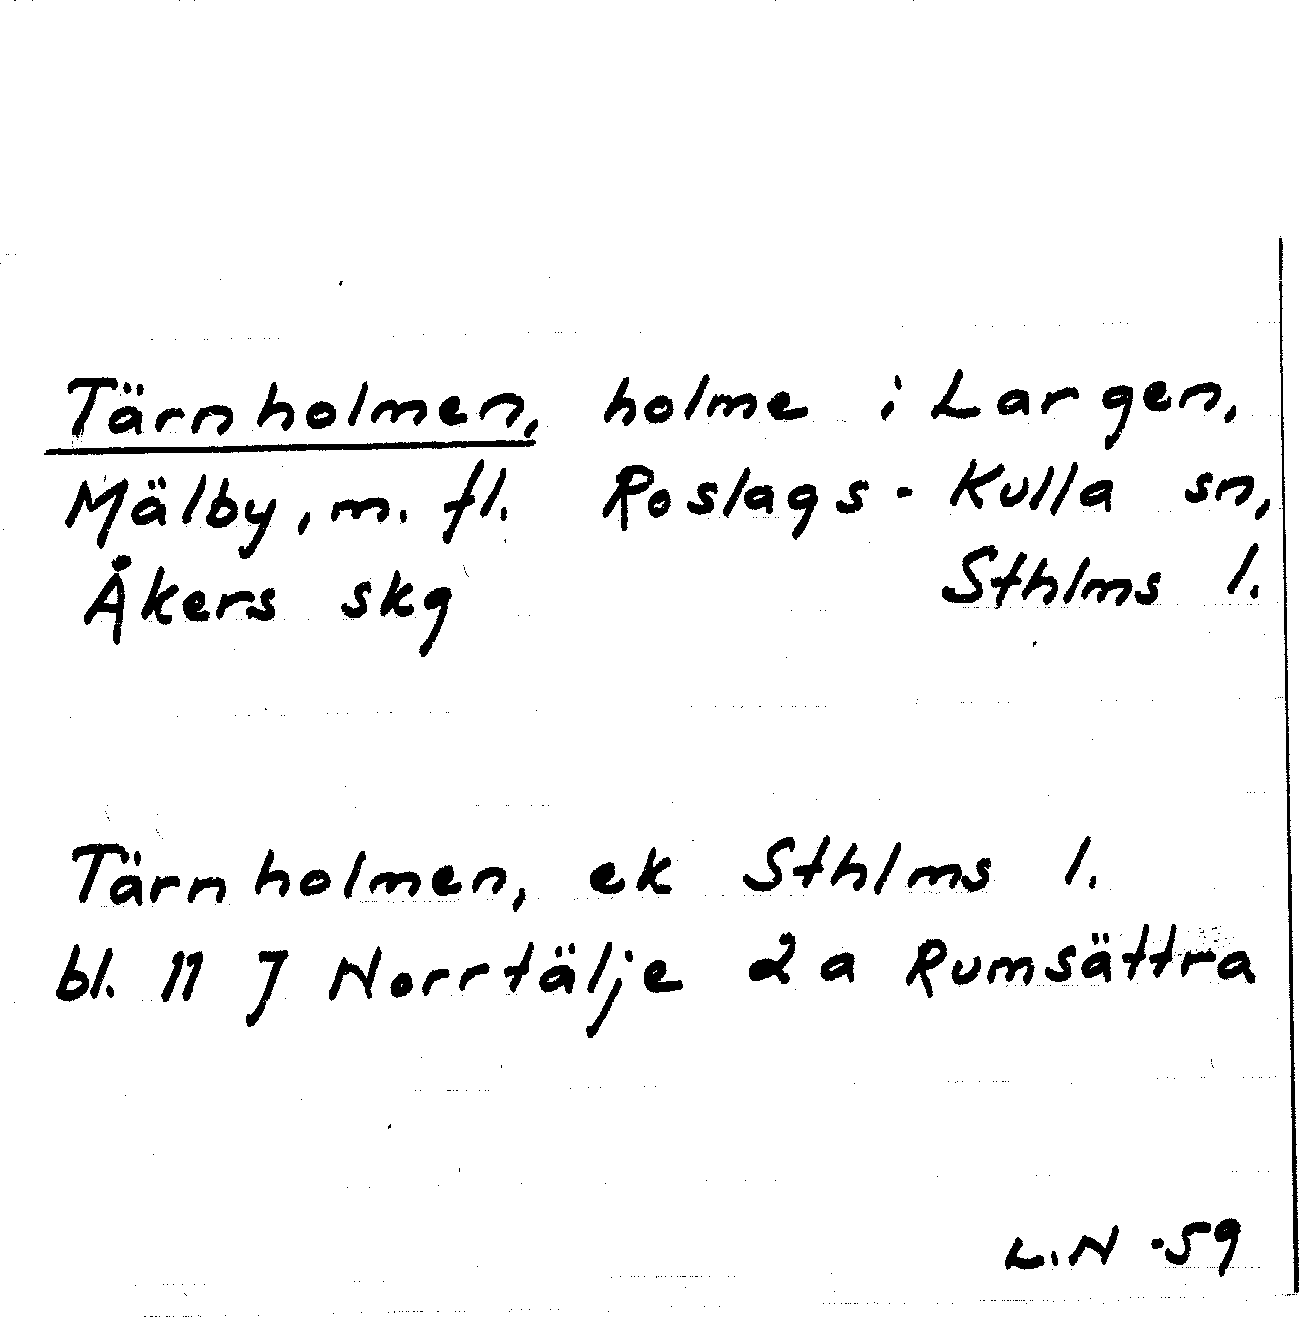 Tärnholmen, holme i Largen,
Mälby, m. fl. Roslags-Kulla sn,
Åkers skg Sthlms l.
Tärnholmen, ek Sthlms l.
bl. 11 J Norrtälje 2 a Rumsättra
L.N -59